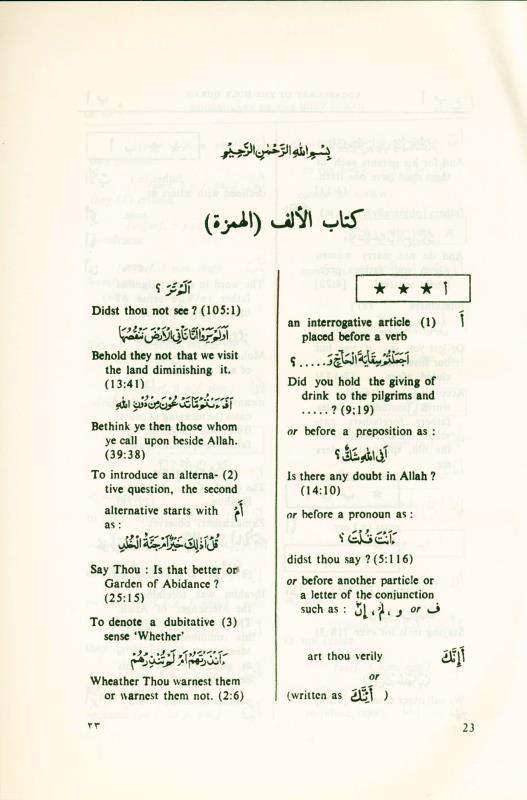 بِسْمِ اللهِ الرَّحْمٰنِ الرَّحِيْمِ
كتاب الألف (الهمزة)
أ ★ ★ ★
an interrogative article (1) أَ
placed before a verb
اَجَعَلْتُمْ سِقَايَةَ الْحَآجِّ وَ.....؟
Did you hold the giving of
drink to the pilgrims and
.....? (9;19)
or before a preposition as :
اَفِى اللهِ شَكٌّ؟
Is there any doubt in Allah ?
(14:10)
or before a pronoun as :
ءَاَنْتَ قُلْتَ ؟
didst thou say ? (5:116)
or before another particle or
a letter of the conjunction
such as : إِنَّ ,لَمْ ,و or ف
art thou verily أَإِنَّكَ
or
(written as أَئِنَّكَ )
اَلَمْ تَرَ ؟
Didst thou not see ? (105:1)
اَوَلَمْ يَرَوْا اَنَّا نَأْتِى الْاَرْضَ نَنْقُصُهَا
Behold they not that we visit
the land diminishing it.
(13:41)
اَفَرَءَيْتُمْ مَّا تَدْعُوْنَ مِنْ دُوْنِ اللهِ
Bethink ye then those whom
ye call upon beside Allah.
(39:38)
To introduce an alterna- (2)
tive question, the second
alternative starts with أَمْ
as :
قُلْ اَذٰلِكَ خَيْرٌ اَمْ جَنَّةُ الْخُلْدِ
Say Thou : Is that better or
Garden of Abidance ?
(25:15)
To denote a dubitative (3)
sense ‘Whether’
ءَاَنْذَرْتَهُمْ اَمْ لَمْ تُنْذِرْهُمْ
Wheather Thou warnest them
or warnest them not. (2:6)
٢٣
23